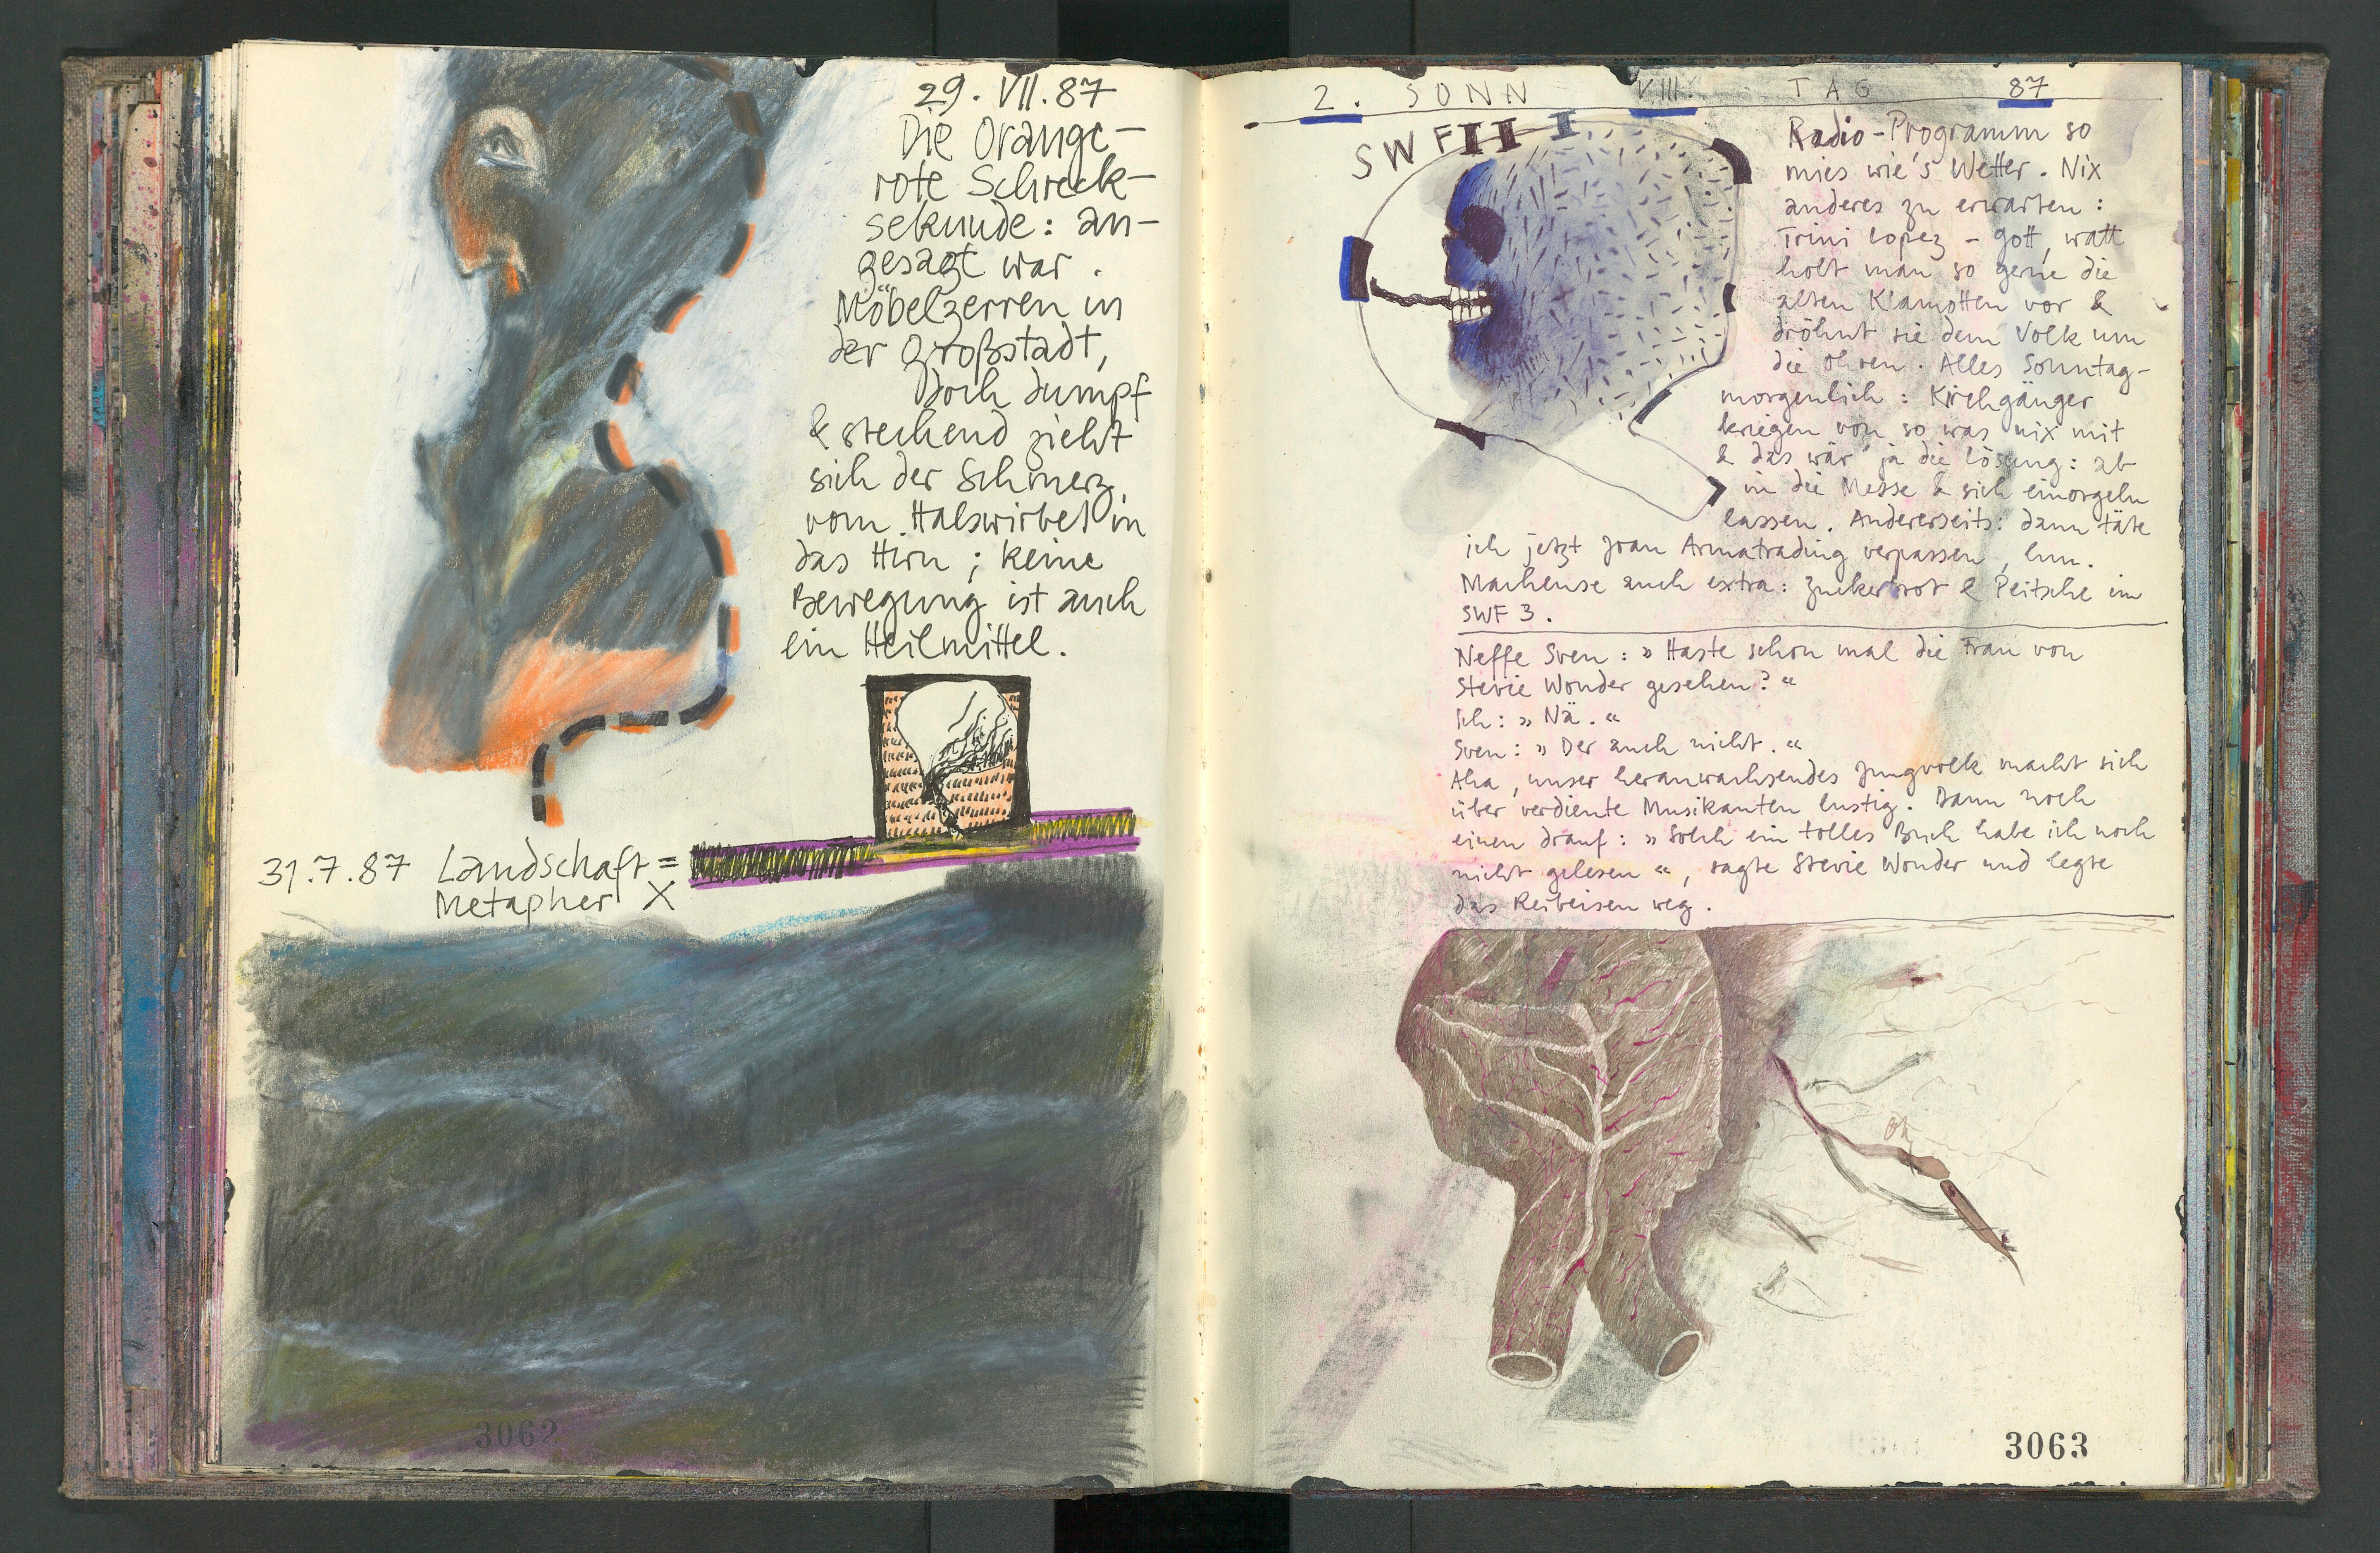 29. VII. 87
Die Orange-
rote Schreck-
sekunde: an-
gesagt war.
Möbelzerren in
der Großstadt,
Doch dumpf
& stechend zieht
sich der Schmerz
vom Halswirbel in
das Hirn; keine
Bewegung ist auch
ein Heilmittel.
31.7.87 Landschaft =
Metapher X
3062
2. SONN VIII. TAG 87
SWF II I
Radio-Programm so
mies wie's Wetter. Nix
anderes zu erwarten:
Trini Lopez - Gott, watt
holt man so gerne die
alten Klamotten vor &
dröhnt sie dem Volk um
die Ohren. Alles Sonntag-
morgenlich: Kirchgänger
kriegen von so was nix mit
& das wär' ja die Lösung: ab
in die Messe & sich einorgeln
lassen. Andererseits: dann täte
ich jetzt Joan Armatrading verpassen, hm.
Machense auch extra: Zuckerbrot & Peitsche im
SWF 3.
Neffe Sven: »Haste schon mal die Frau von
Stevie Wonder gesehen?«
Ich: »Nä.«
Sven: »Der auch nicht.«
Aha, unser heranwachsendes Jungvolk macht sich
über verdiente Musikanten lustig. Dann noch
einen drauf: »Solch ein tolles Buch habe ich noch
nicht gelesen«, sagte Stevie Wonder und legte
das Reibeisen weg.
3063